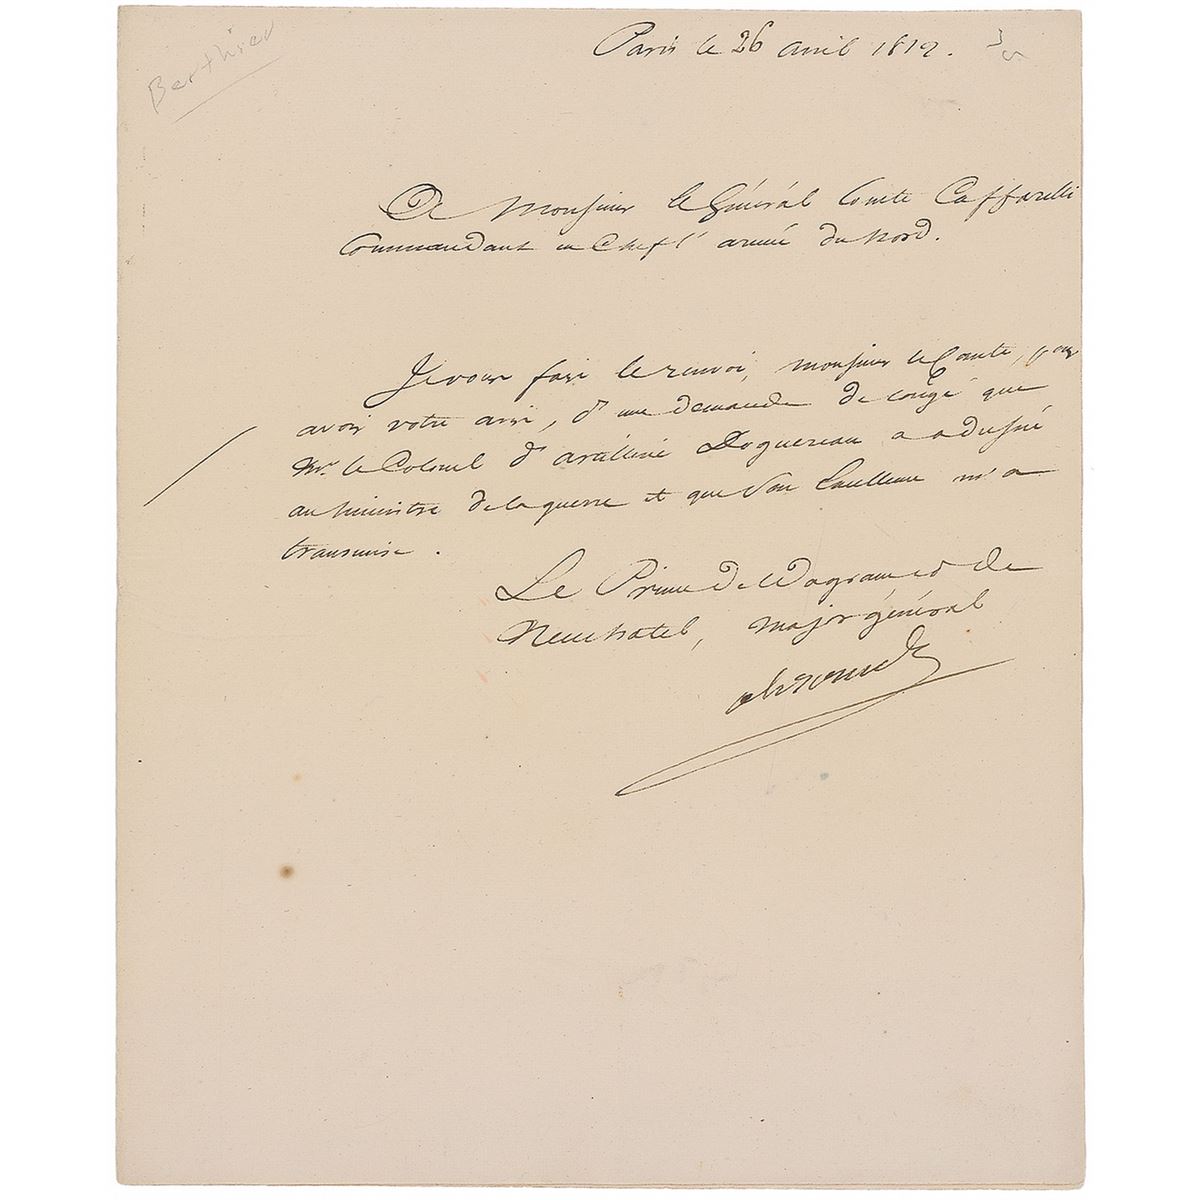 Berthier
Paris le 26 avril 1812.
A Monsieur le Général Comte Caffarelli
Commandant en Chef l'armée du Nord.
Je vous fais le renvoi, monsieur le Comte, pour
avoir votre avis, d'une demande de congé que
Mr. le Colonel d'artillerie Doguereau a adressé
au ministre de la guerre et que Son Excellence m'a
transmise.
Le Prince de Wagram et de
Neuchatel, major général
Alexandre